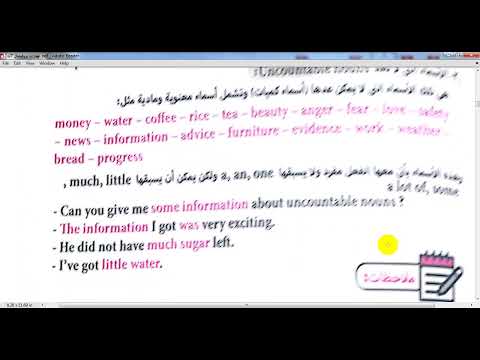 Uncountable nouns
هي تلك الأسماء التي لا يمكن عدها (أسماء كميات) وتشمل أسماء معنوية ومادية مثل:
money – water – coffee – rice – tea – beauty – anger – fear – love – safety
– news – information – advice – furniture – evidence – work – weather –
bread – progress
وهذه الأسماء يأتي معها الفعل مفرد ولا يسبقها a, an, one ولكن يمكن أن يسبقها much, little ,
a lot of, some
- Can you give me some information about uncountable nouns ?
- The information I got was very exciting.
- He did not have much sugar left.
- I've got little water.
ملاحظات: